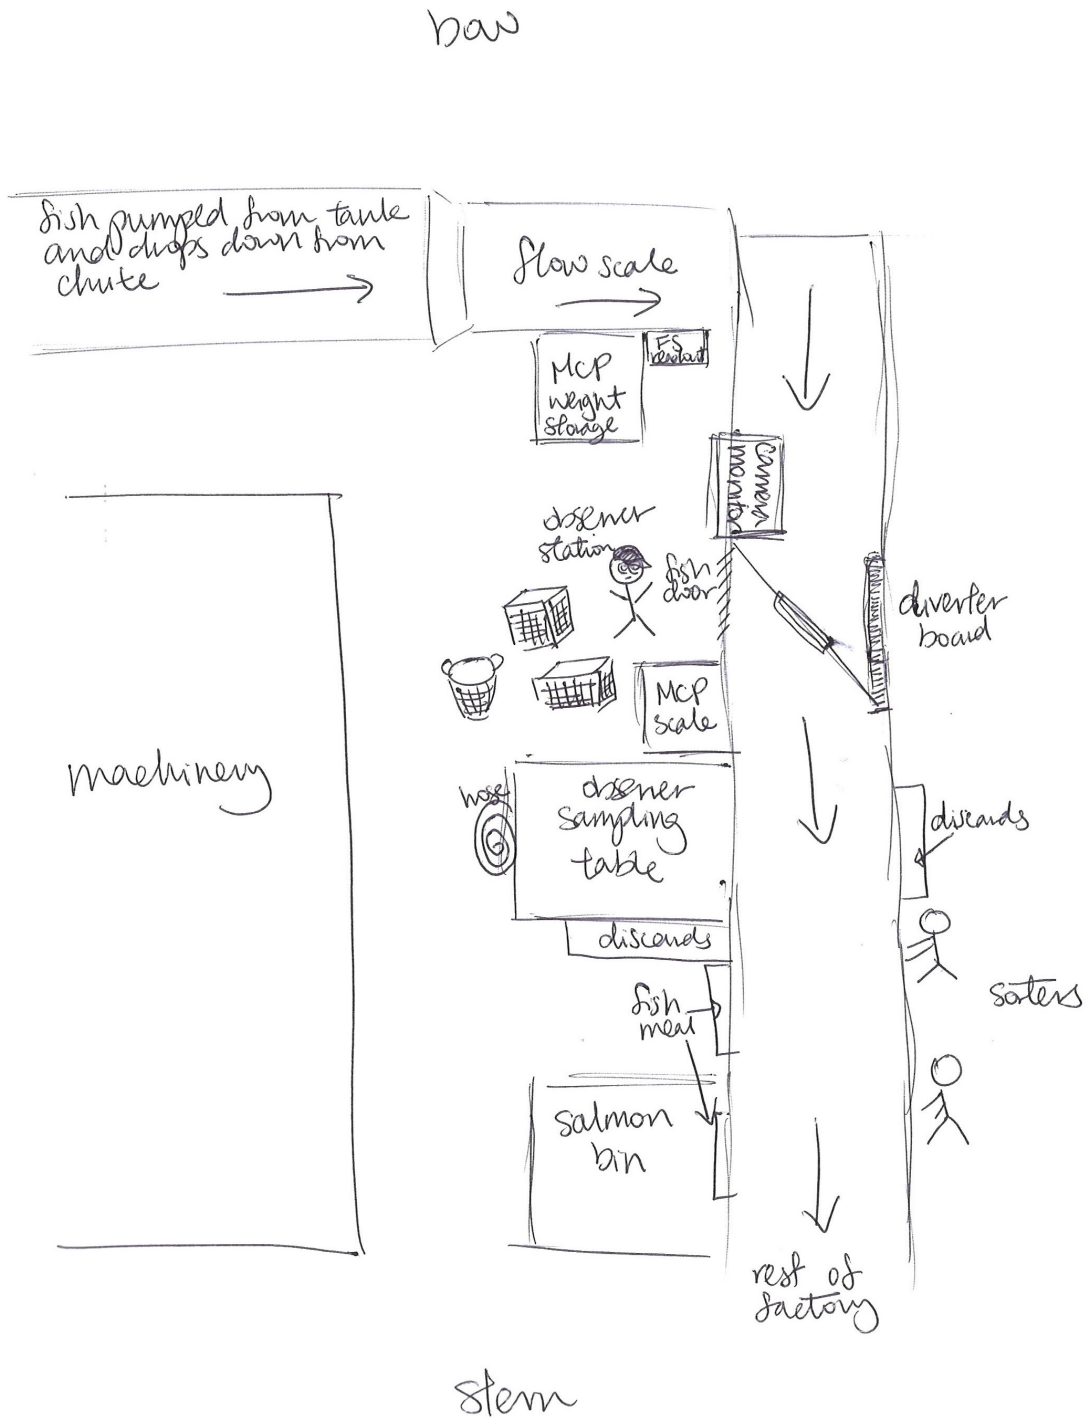 bow
fish pumped from tank
and drops down from
chute
flow scale
MCP
weight
storage
FS
readout
camera
monitor
observer
station
fish
door
diverter
board
MCP
scale
machinery
hose
observer
sampling
table
discards
discards
fish
meal
sorters
salmon
bin
rest of
factory
stern